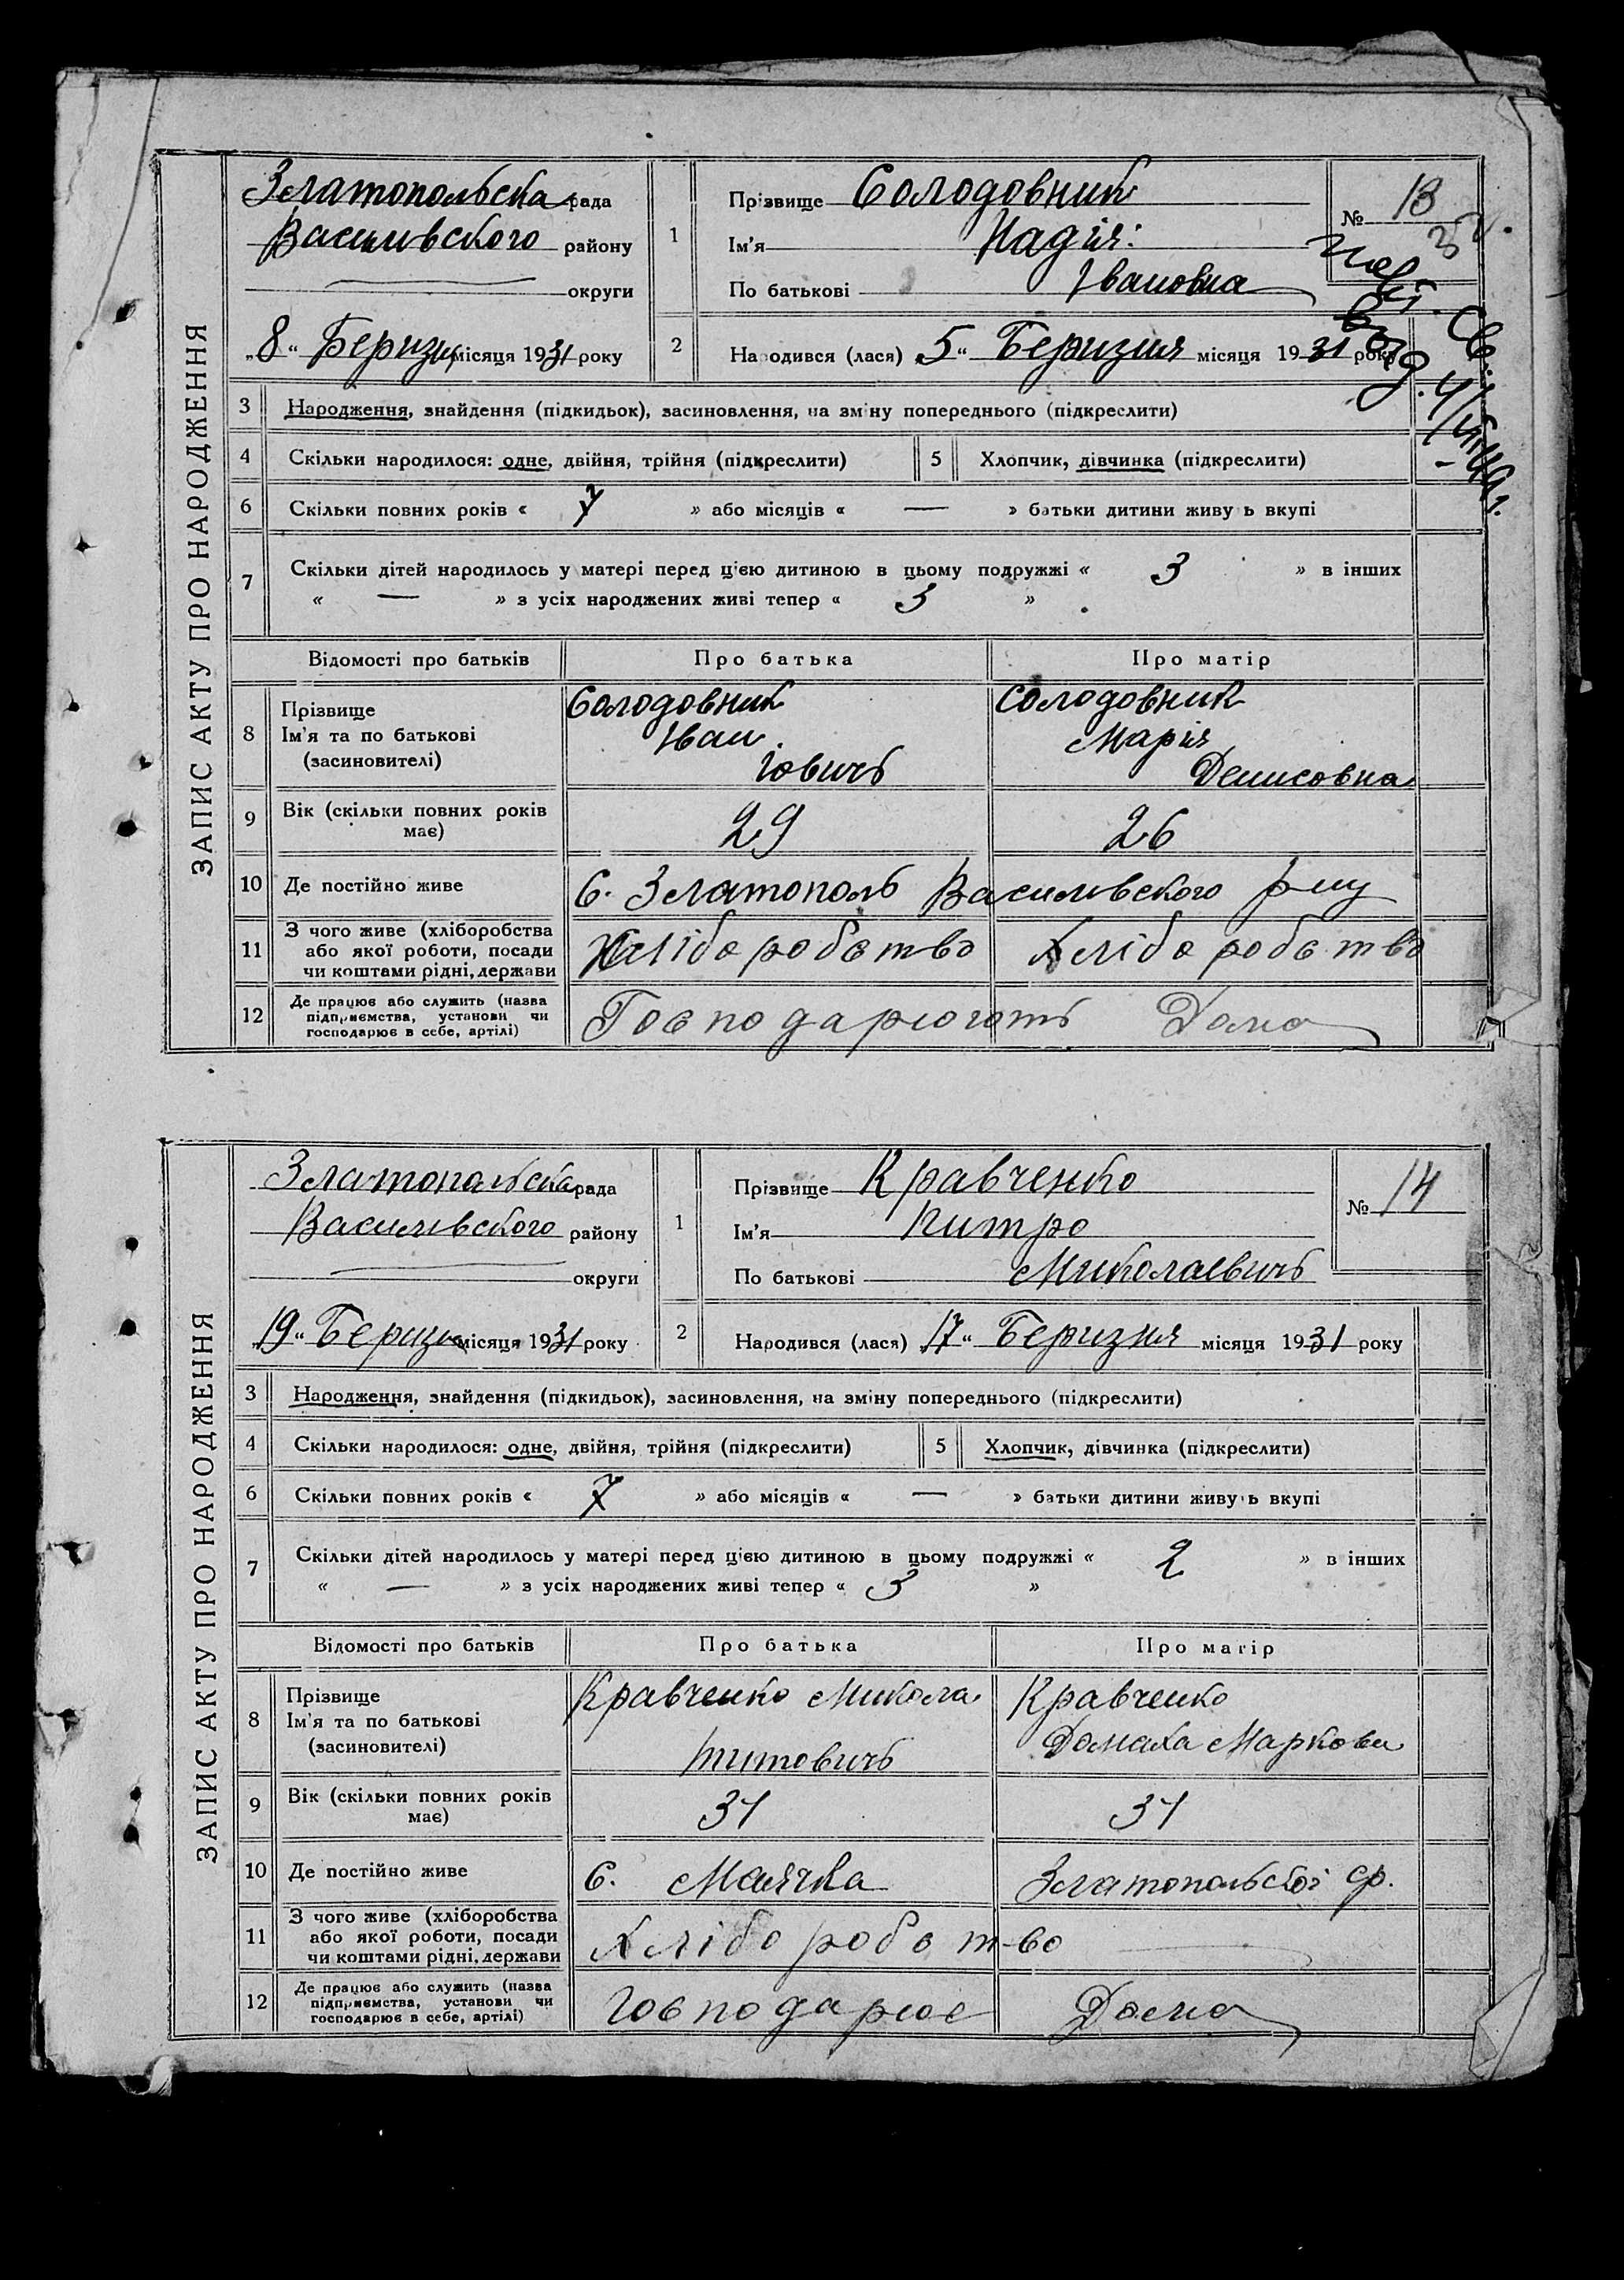 ЗАПИС АКТУ ПРО НАРОДЖЕННЯ
Златопольска рада
Василивского району
округи
„8“ Беризня місяця 1931 року
1
Прізвище Солодовник
Ім'я Надія:
По батькові Івановна
№ 13
2
Народився (лася) „5“ Беризня місяця 1931 року
3 Народження, знайдення (підкидьок), засиновлення, на зміну попереднього (підкреслити)
4 Скільки народилося: одне, двійня, трійня (підкреслити) 5 Хлопчик, дівчинка (підкреслити)
6 Скільки повних років « 7 » або місяців « — » батьки дитини живуть вкупі
7 Скільки дітей народилось у матері перед цією дитиною в цьому подружжі « 3 » в інших
« — » з усіх народжених живі тепер « 3 »
Відомості про батьків Про батька Про матір
8 Прізвище
Ім'я та по батькові
(засиновителі)
Солодовник
Іван
Іович
Солодовник
Марія
Денисовна
9 Вік (скільки повних років
має)
29 26
10 Де постійно живе С. Златополь Василивского р-ну
11 З чого живе (хліборобства
або якої роботи, посади
чи коштами рідні, держави
Хліборобство Хліборобство
12 Де працює або служить (назва
підприємства, установи чи
господарює в себе, артілі)
Господарюють Дома
ЗАПИС АКТУ ПРО НАРОДЖЕННЯ
Златопольска рада
Василивского району
округи
„19“ Беризня місяця 1931 року
1
Прізвище Кравченко
Ім'я
По батькові Миколаевичь
№ 14
2
Народився (лася) „17“ Беризня місяця 1931 року
3 Народження, знайдення (підкидьок), засиновлення, на зміну попереднього (підкреслити)
4 Скільки народилося: одне, двійня, трійня (підкреслити) 5 Хлопчик, дівчинка (підкреслити)
6 Скільки повних років « 7 » або місяців « — » батьки дитини живуть вкупі
7 Скільки дітей народилось у матері перед цією дитиною в цьому подружжі « 2 » в інших
« — » з усіх народжених живі тепер « 3 »
Відомості про батьків Про батька Про матір
8 Прізвище
Ім'я та по батькові
(засиновителі)
Кравченко Микола
Титовичь
Кравченко
Домаха Маркови
9 Вік (скільки повних років
має)
31 31
10 Де постійно живе С. Маячка Златопольской ср.
11 З чого живе (хліборобства
або якої роботи, посади
чи коштами рідні, держави
Хлібороботво
12 Де працює або служить (назва
підприємства, установи чи
господарює в себе, артілі)
Господарює Дома